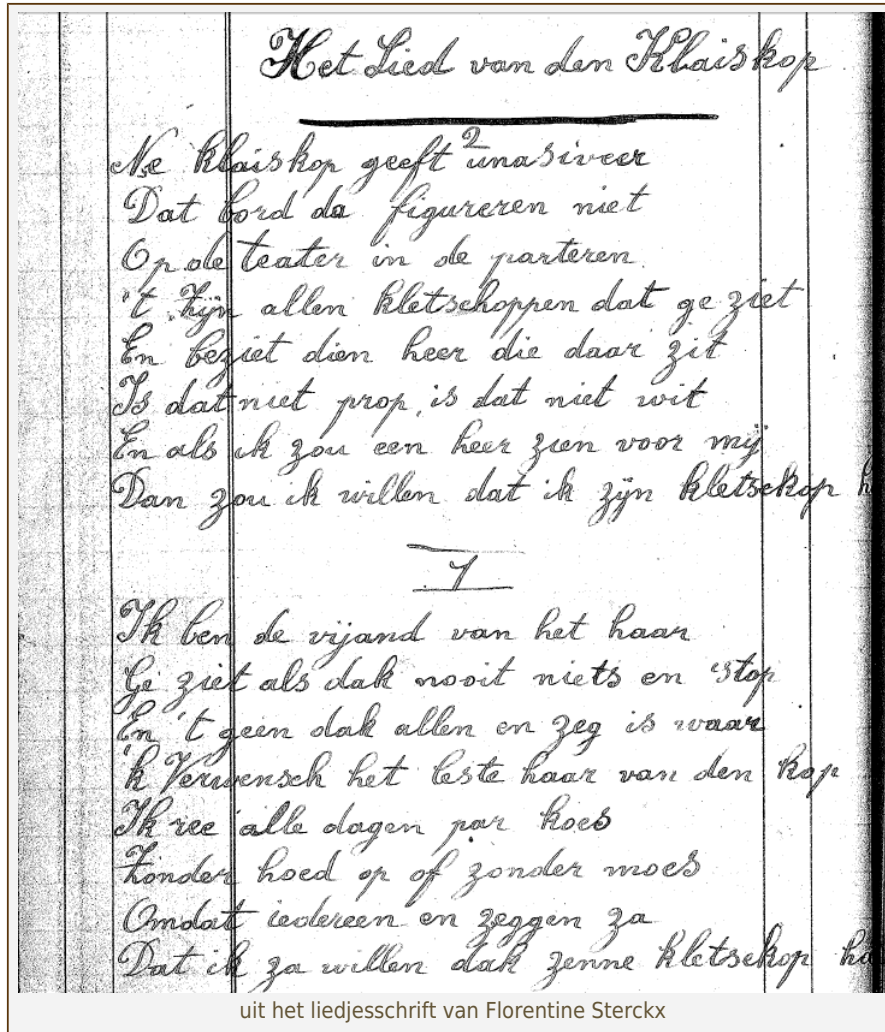 Het Lied van den Klaiskop
2
Ne klaiskop geeft unasiveer
Dat bord da figureren niet
Op de teater in de parteren
't Zijn allen kletschoppen dat ge ziet
En beziet dien heer die daar zit
Is dat niet prop, is dat niet wit
En als ik zou een heer zien voor mij
Dan zou ik willen dat ik zijn kletsekop
1
Ik ben de vijand van het haar
Ge ziet als dak nooit niets en stop
En 't geen dak allen en zeg is waar
'k Verwensch het leste haar van den kop
Ik zee alle dagen par koes
Zonder hoed op of zonder moes
Omdat iedereen en zeggen za
Dat ik za willen dak zenne kletsekop
uit het liedjesschrift van Florentine Sterckx